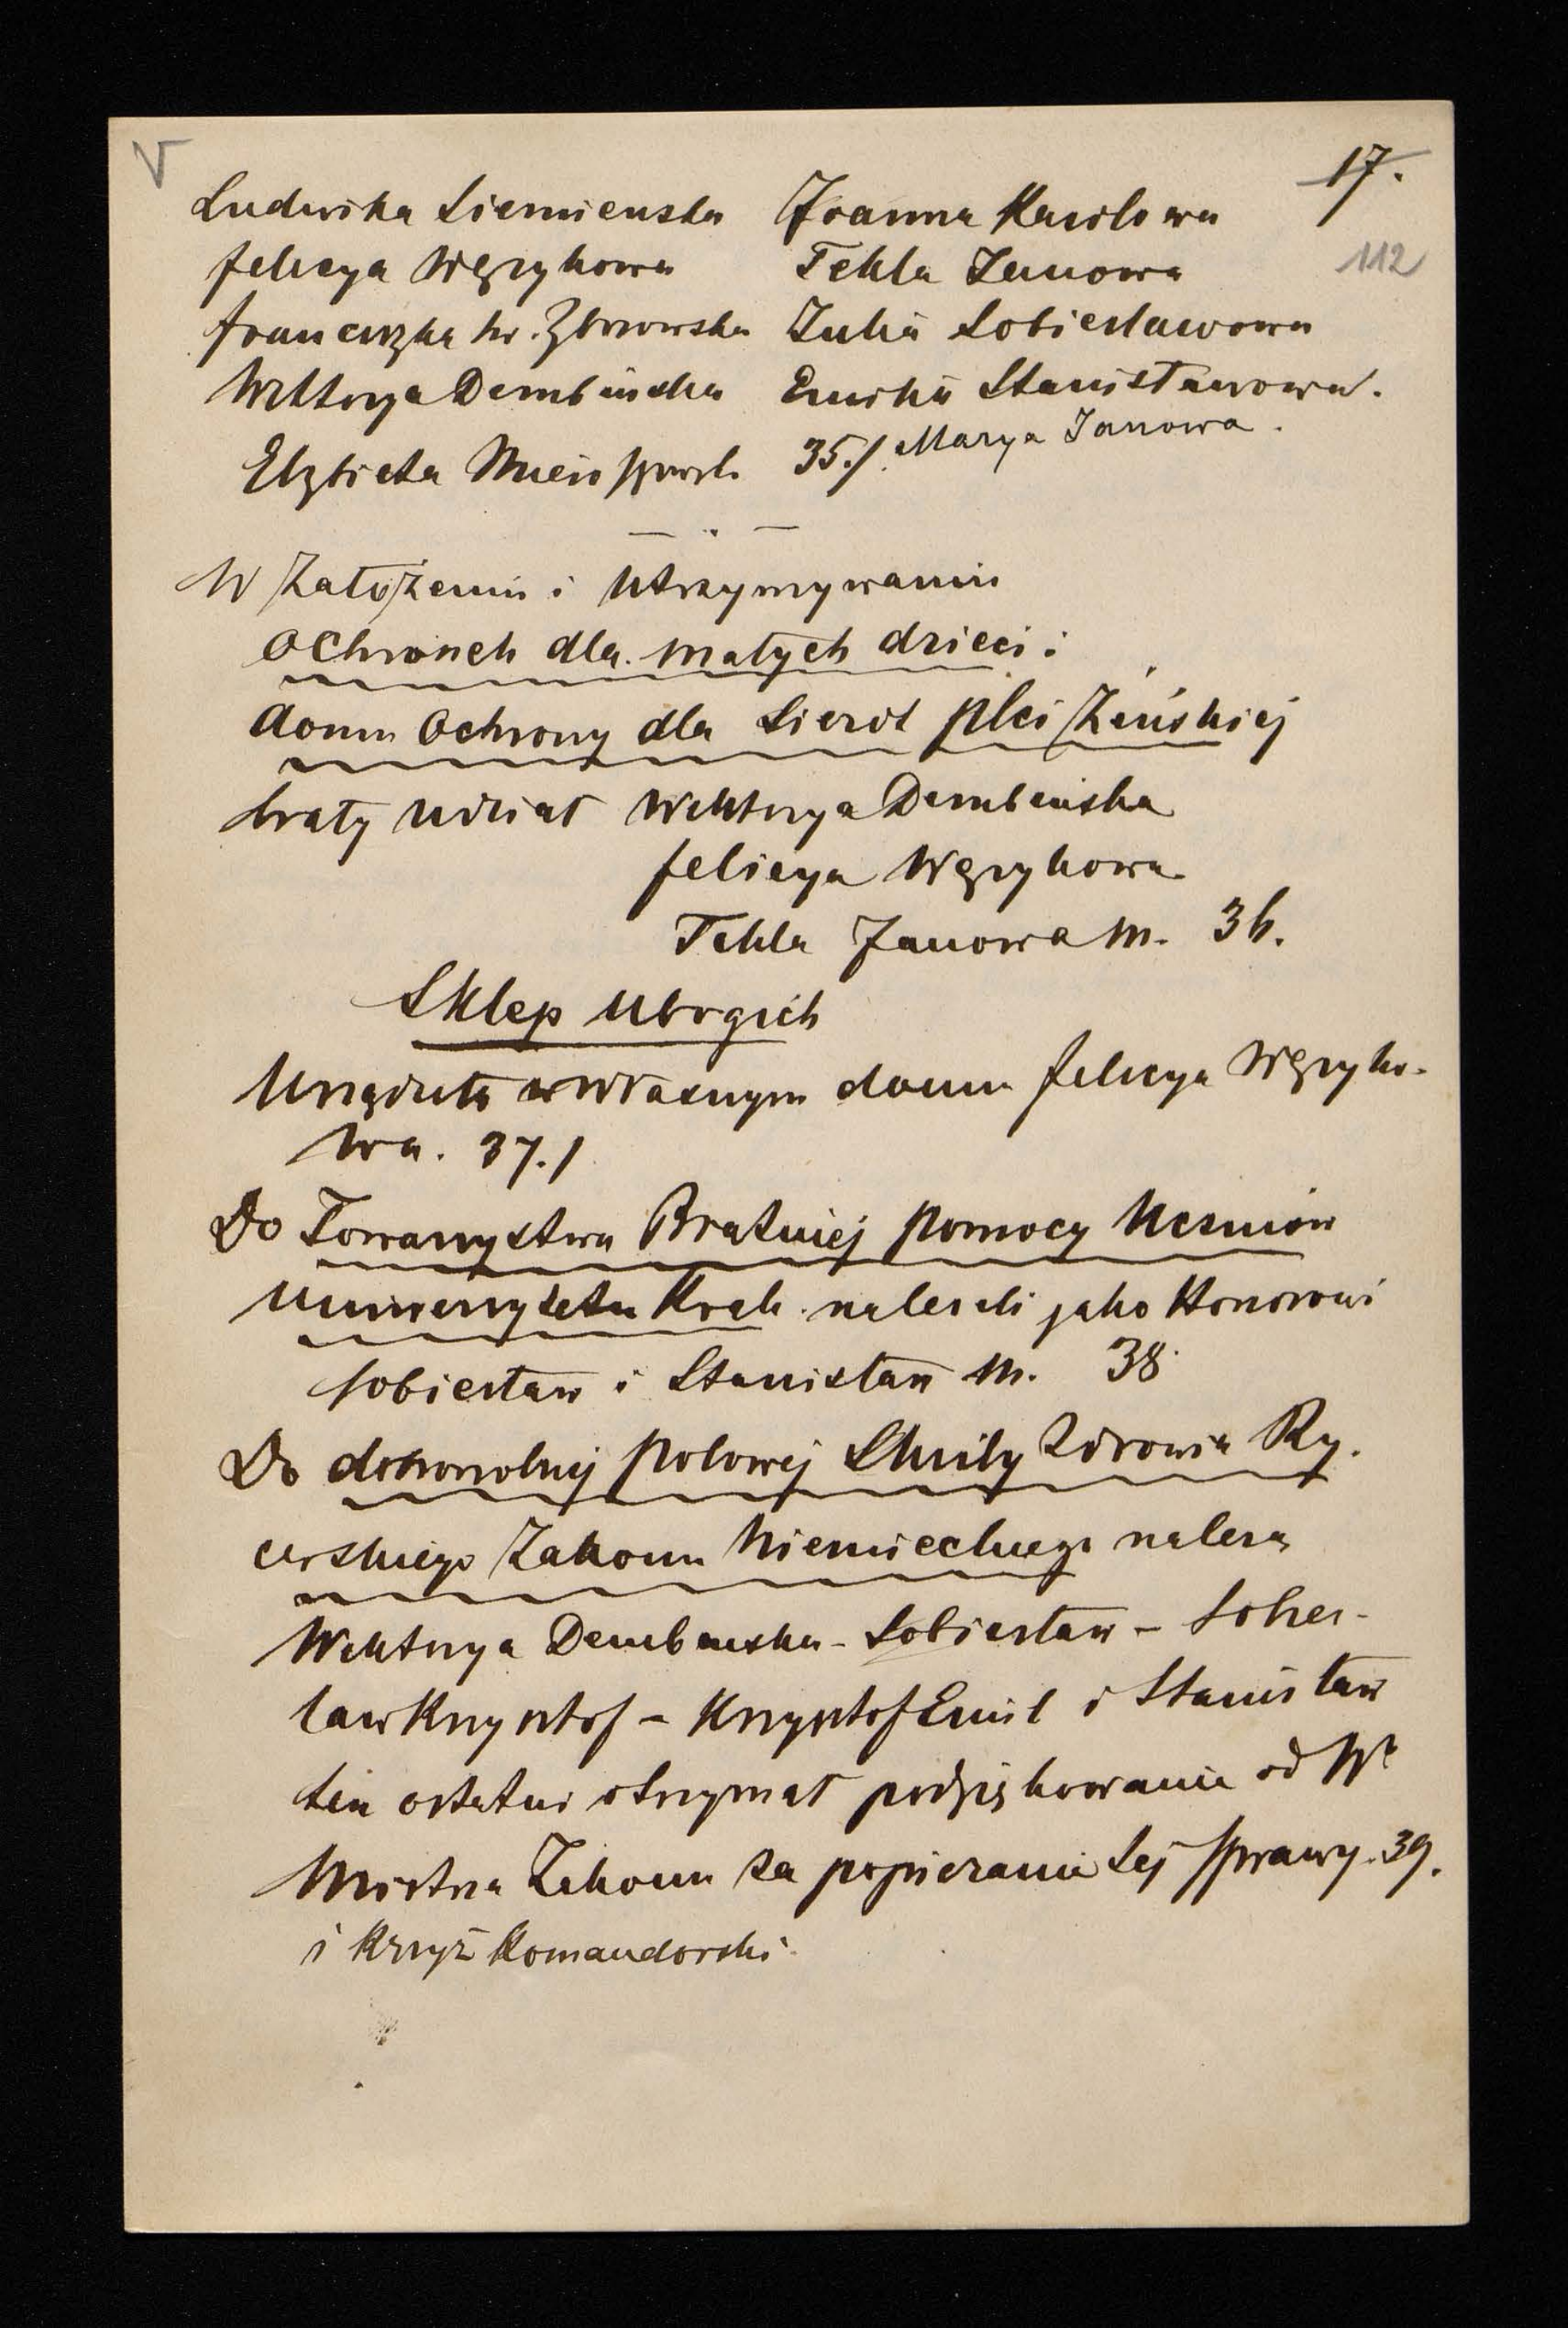 V
17.
112
Ludwika Siemieńska Joanna Karolowa
Felicya Węzykowa Tekla Janowa
Franciszka hr. Zborowska Julia Sobiesławowa
Wiktorya Dembińska Emilia Stanisławowa.
Elzbieta 35./. Marya Janowa.
W Założeniu i Utrzymywaniu
Ochronek dla małych dzieci i
domu Ochrony dla Sierot płci Żeńskiej
brały udział Wiktorya Dembińska
Felicya Węzykowa
Tekla Janowa M. 36.
Sklep Ubogich
Urządziła w Własnym domu Felicya Węzyko-
wa. 37./
Do Towarzystwa Bratniej Pomocy Uczniów
Uniwersytetu Krak. należeli jako Honorowi
Sobiesław i Stanisław M. 38
Do dobrowolnej Polowej Służby Zdrowia Ry-
cerskiego Zakonu Niemieckiego należą
Wiktorya Dembińska - Sobiesław - Sobies-
ław Krzysztof - Krzysztof Emil i Stanisław
ten ostatni otrzymał podziękowanie od
Mistrza Zakonu za popieranie tej Sprawy. 39.
i Krzyż Komandorski